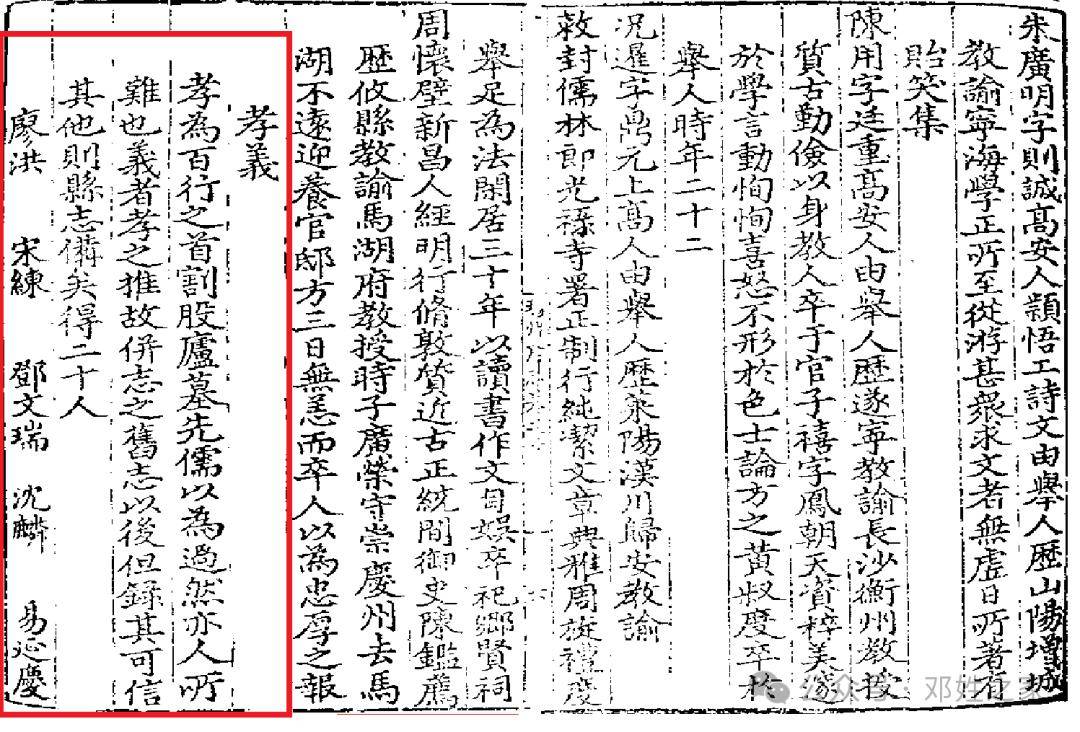 朱廣明字則誠高安人穎悟工詩文由舉人歷山陽增城
教諭寧海學正所至從游甚衆求文者無虛日所著有
貽笑集
陳用字廷重高安人由舉人歷遂寧教諭長沙衡州教授
質古勤儉以身教人卒于官子禧字鳳朝天資梓美邃
於學言動恂恂喜怒不形於色士論方之黃叔度卒於
舉人時年二十二
況暹字鼎元上高人由舉人歷萊陽漢川歸安教諭
敕封儒林郎光祿寺署正制行純潔文章典雅周旋禮度
舉足為法閑居三十年以讀書作文自娛卒祀鄉賢祠
周懷璧新昌人經明行脩敦質近古正統間御史陳鑑薦
歷攸縣教諭馬湖府教授時子廣榮守崇慶州去馬
湖不遠迎養官邸方三日無恙而卒人以為忠厚之報
孝義
孝為百行之首割股廬墓先儒以為過然亦人所
難也義者孝之推故併志之舊志以後但錄其可信
其他則縣志備矣得二十人
廖洪 宋練 鄧文瑞 沈麟 易延慶
公众号 邓姓之家